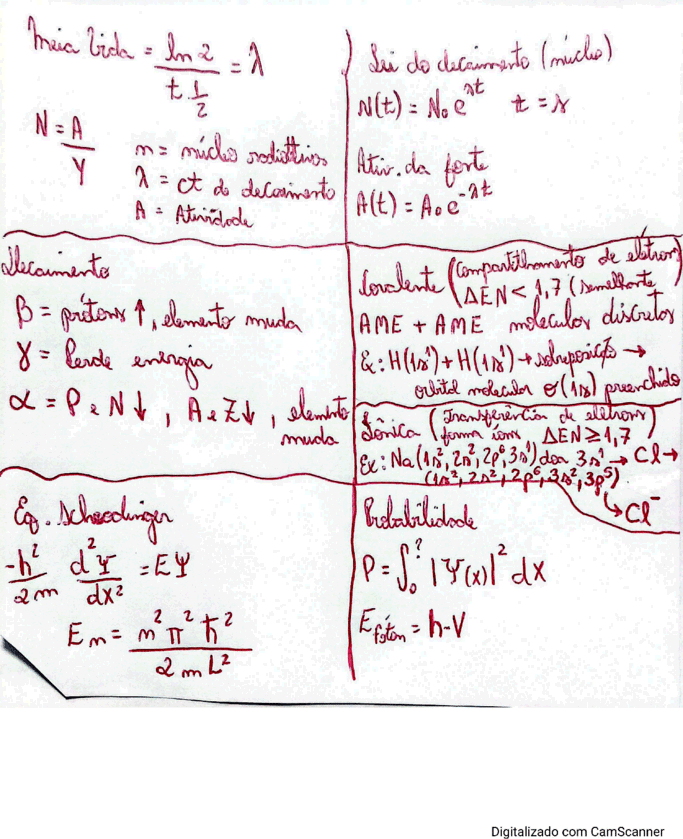 Meia Vida = ln 2 / t 1/2 = λ
N = A / Y
n = núcleo radiativos
λ = ct de decaimento
A = Atividade
Lei do decaimento (núcleo)
N(t) = N₀ e^λt t = s
Ativ. da fonte
A(t) = A₀ e^-λt
Decaimento
β = prótons ↑, elemento muda
γ = Perde energia
α = P e N ↓, A e Z ↓, elemento
muda
Covalente (Compartilhamento de elétrons)
ΔEN < 1,7 (semelhante
AME + AME moleculas discretas
Ex: H(1s¹) + H(1s¹) → sobreposição →
orbital molecular σ(1s) preenchido
Iônica (Transferência de eletrons)
forma íons, ΔEN ≥ 1,7
Ex: Na (1s², 2s², 2p⁶, 3s¹) doa 3s¹ → Cl →
(1s², 2s², 2p⁶, 3s², 3p⁵)
↳ Cl⁻
Eq. Schrodinger
-ħ²/2m d²Ψ/dx² = EΨ
En = n² π² ħ² / 2mL²
Probabilidade
P = ∫₀^? |Ψ(x)|² dx
E fóton = h-V
Digitalizado com CamScanner